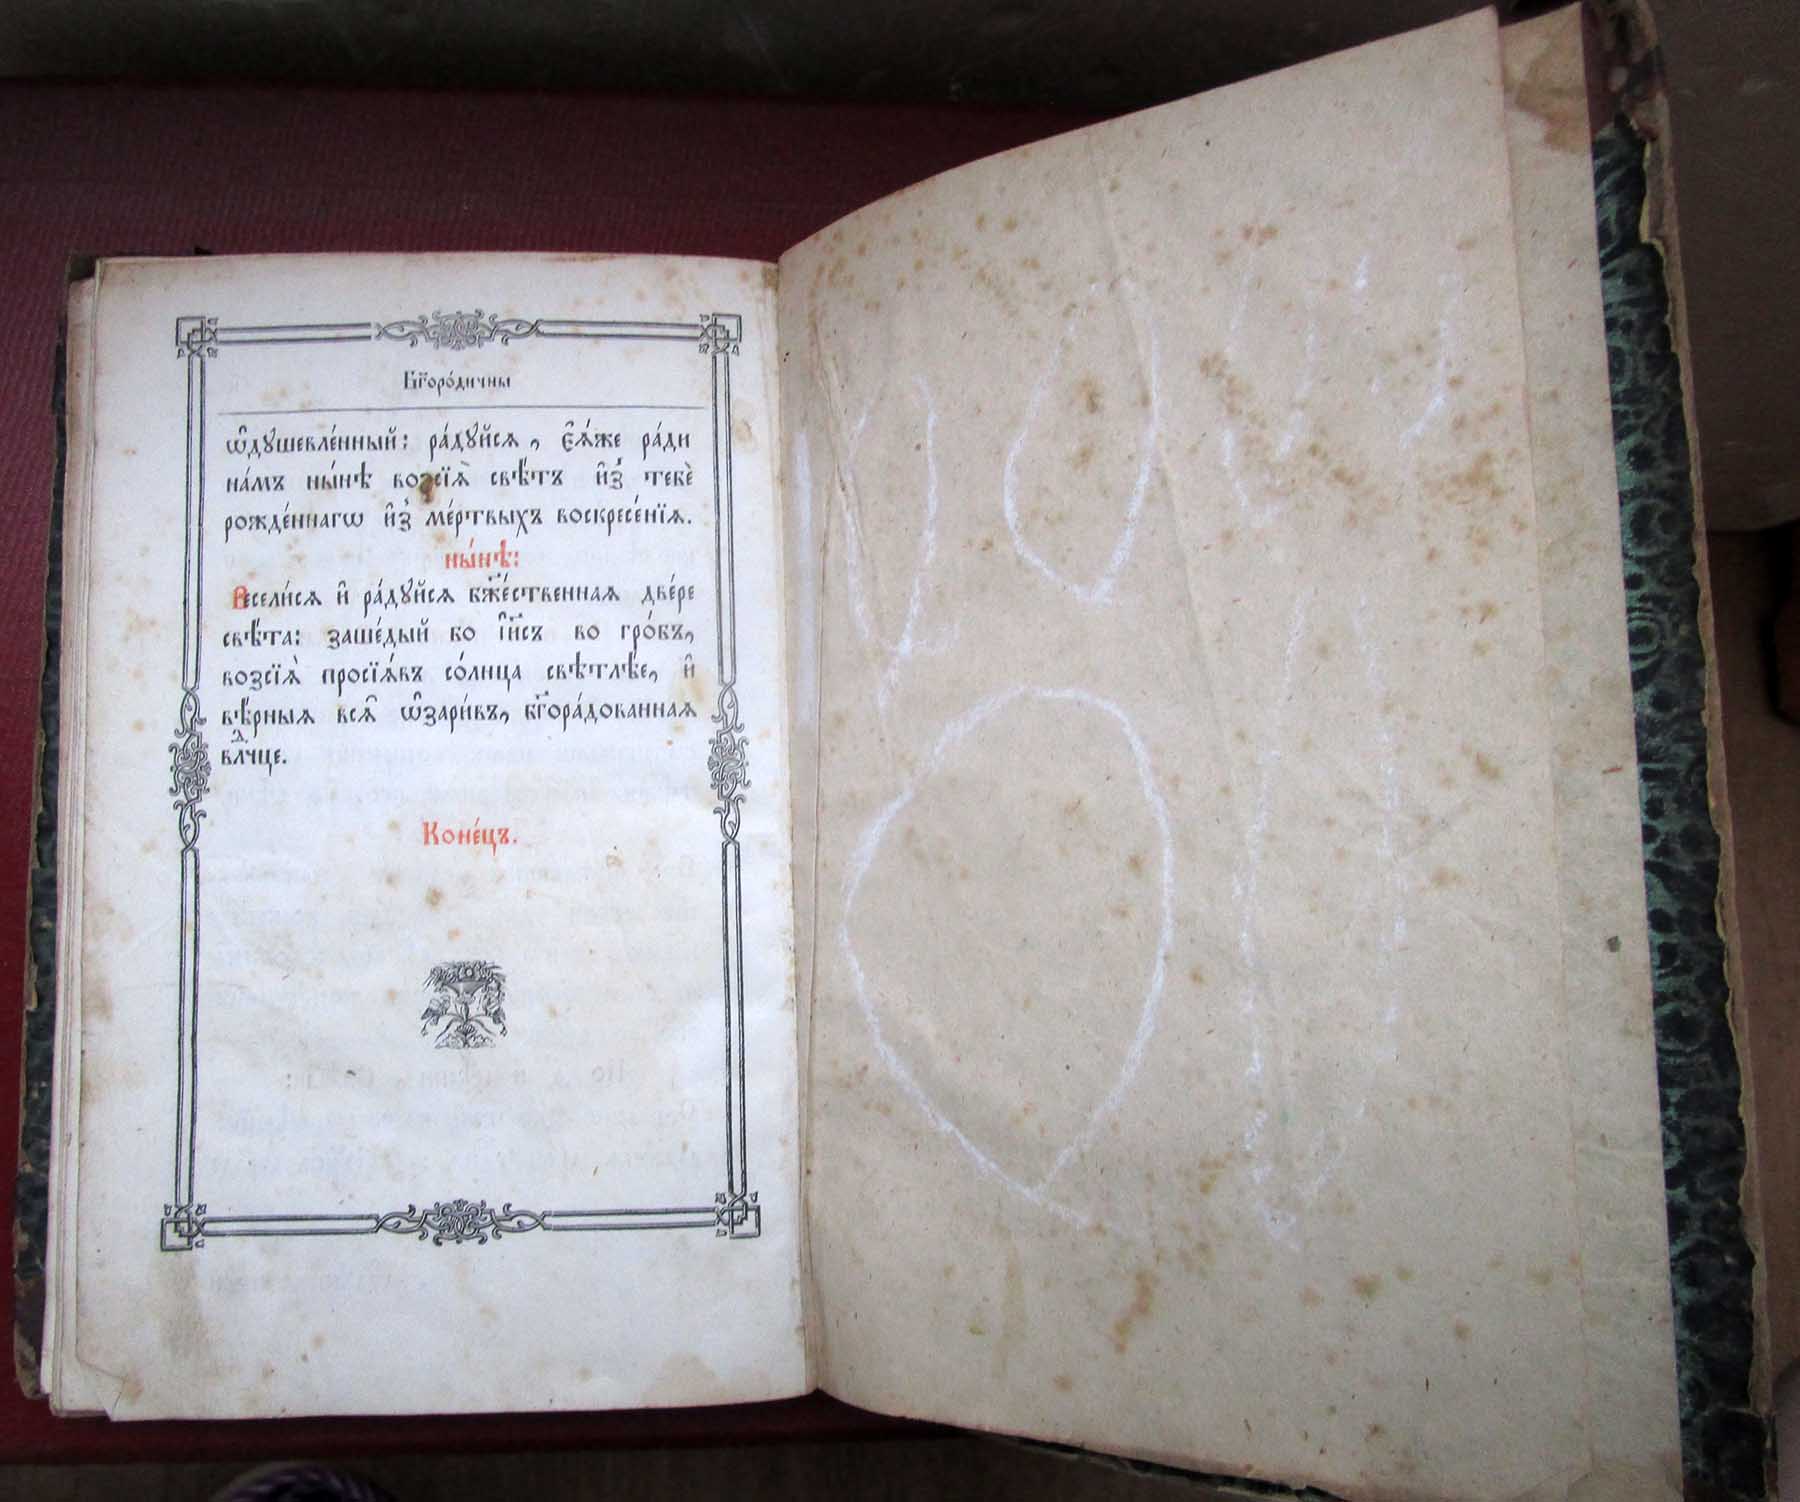 Бг҃оро́дичны
ѡ҆дꙋшевле́нный: ра́дꙋйсѧ, є҆ѧ́же ра́ди
на́мъ ны́нѣ возсїѧ̀ свѣ́тъ и҆з̾ тебє̀
рожде́ннагѡ и҆з̾ ме́ртвыхъ воскресе́нїѧ.
ны́нѣ:
Весели́сѧ и҆ ра́дꙋйсѧ бж҃е́ственнаѧ две́ре
свѣ́та: заше́дый бо і҆и҃съ во гро́бъ,
возсїѧ̀ просїѧ́въ со́лнца свѣтлѣ́е, и҆
вѣ̑рныѧ всѧ̑ ѡ҆зари́въ, бг҃ора́дованнаѧ
влⷣчце.
Коне́цъ.